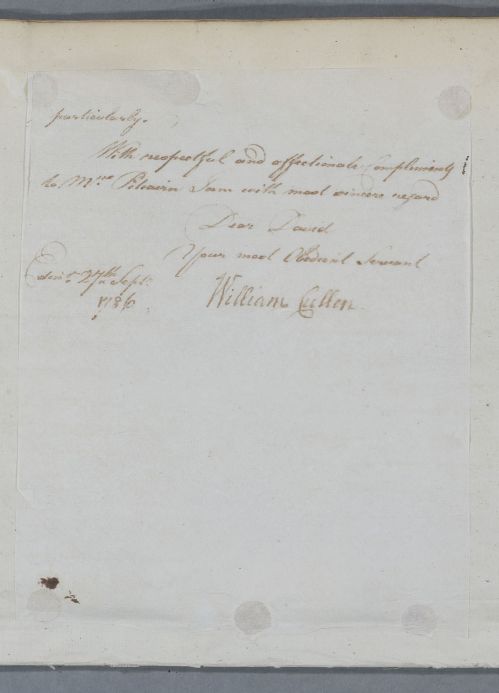 particularly.
With respectful and affectionate Compliments
to Mrs Pitcairn I am with most sincere regard
Dear David
Your most Obedient Servant
Edinr. 27th Septr.
1786
William Cullen